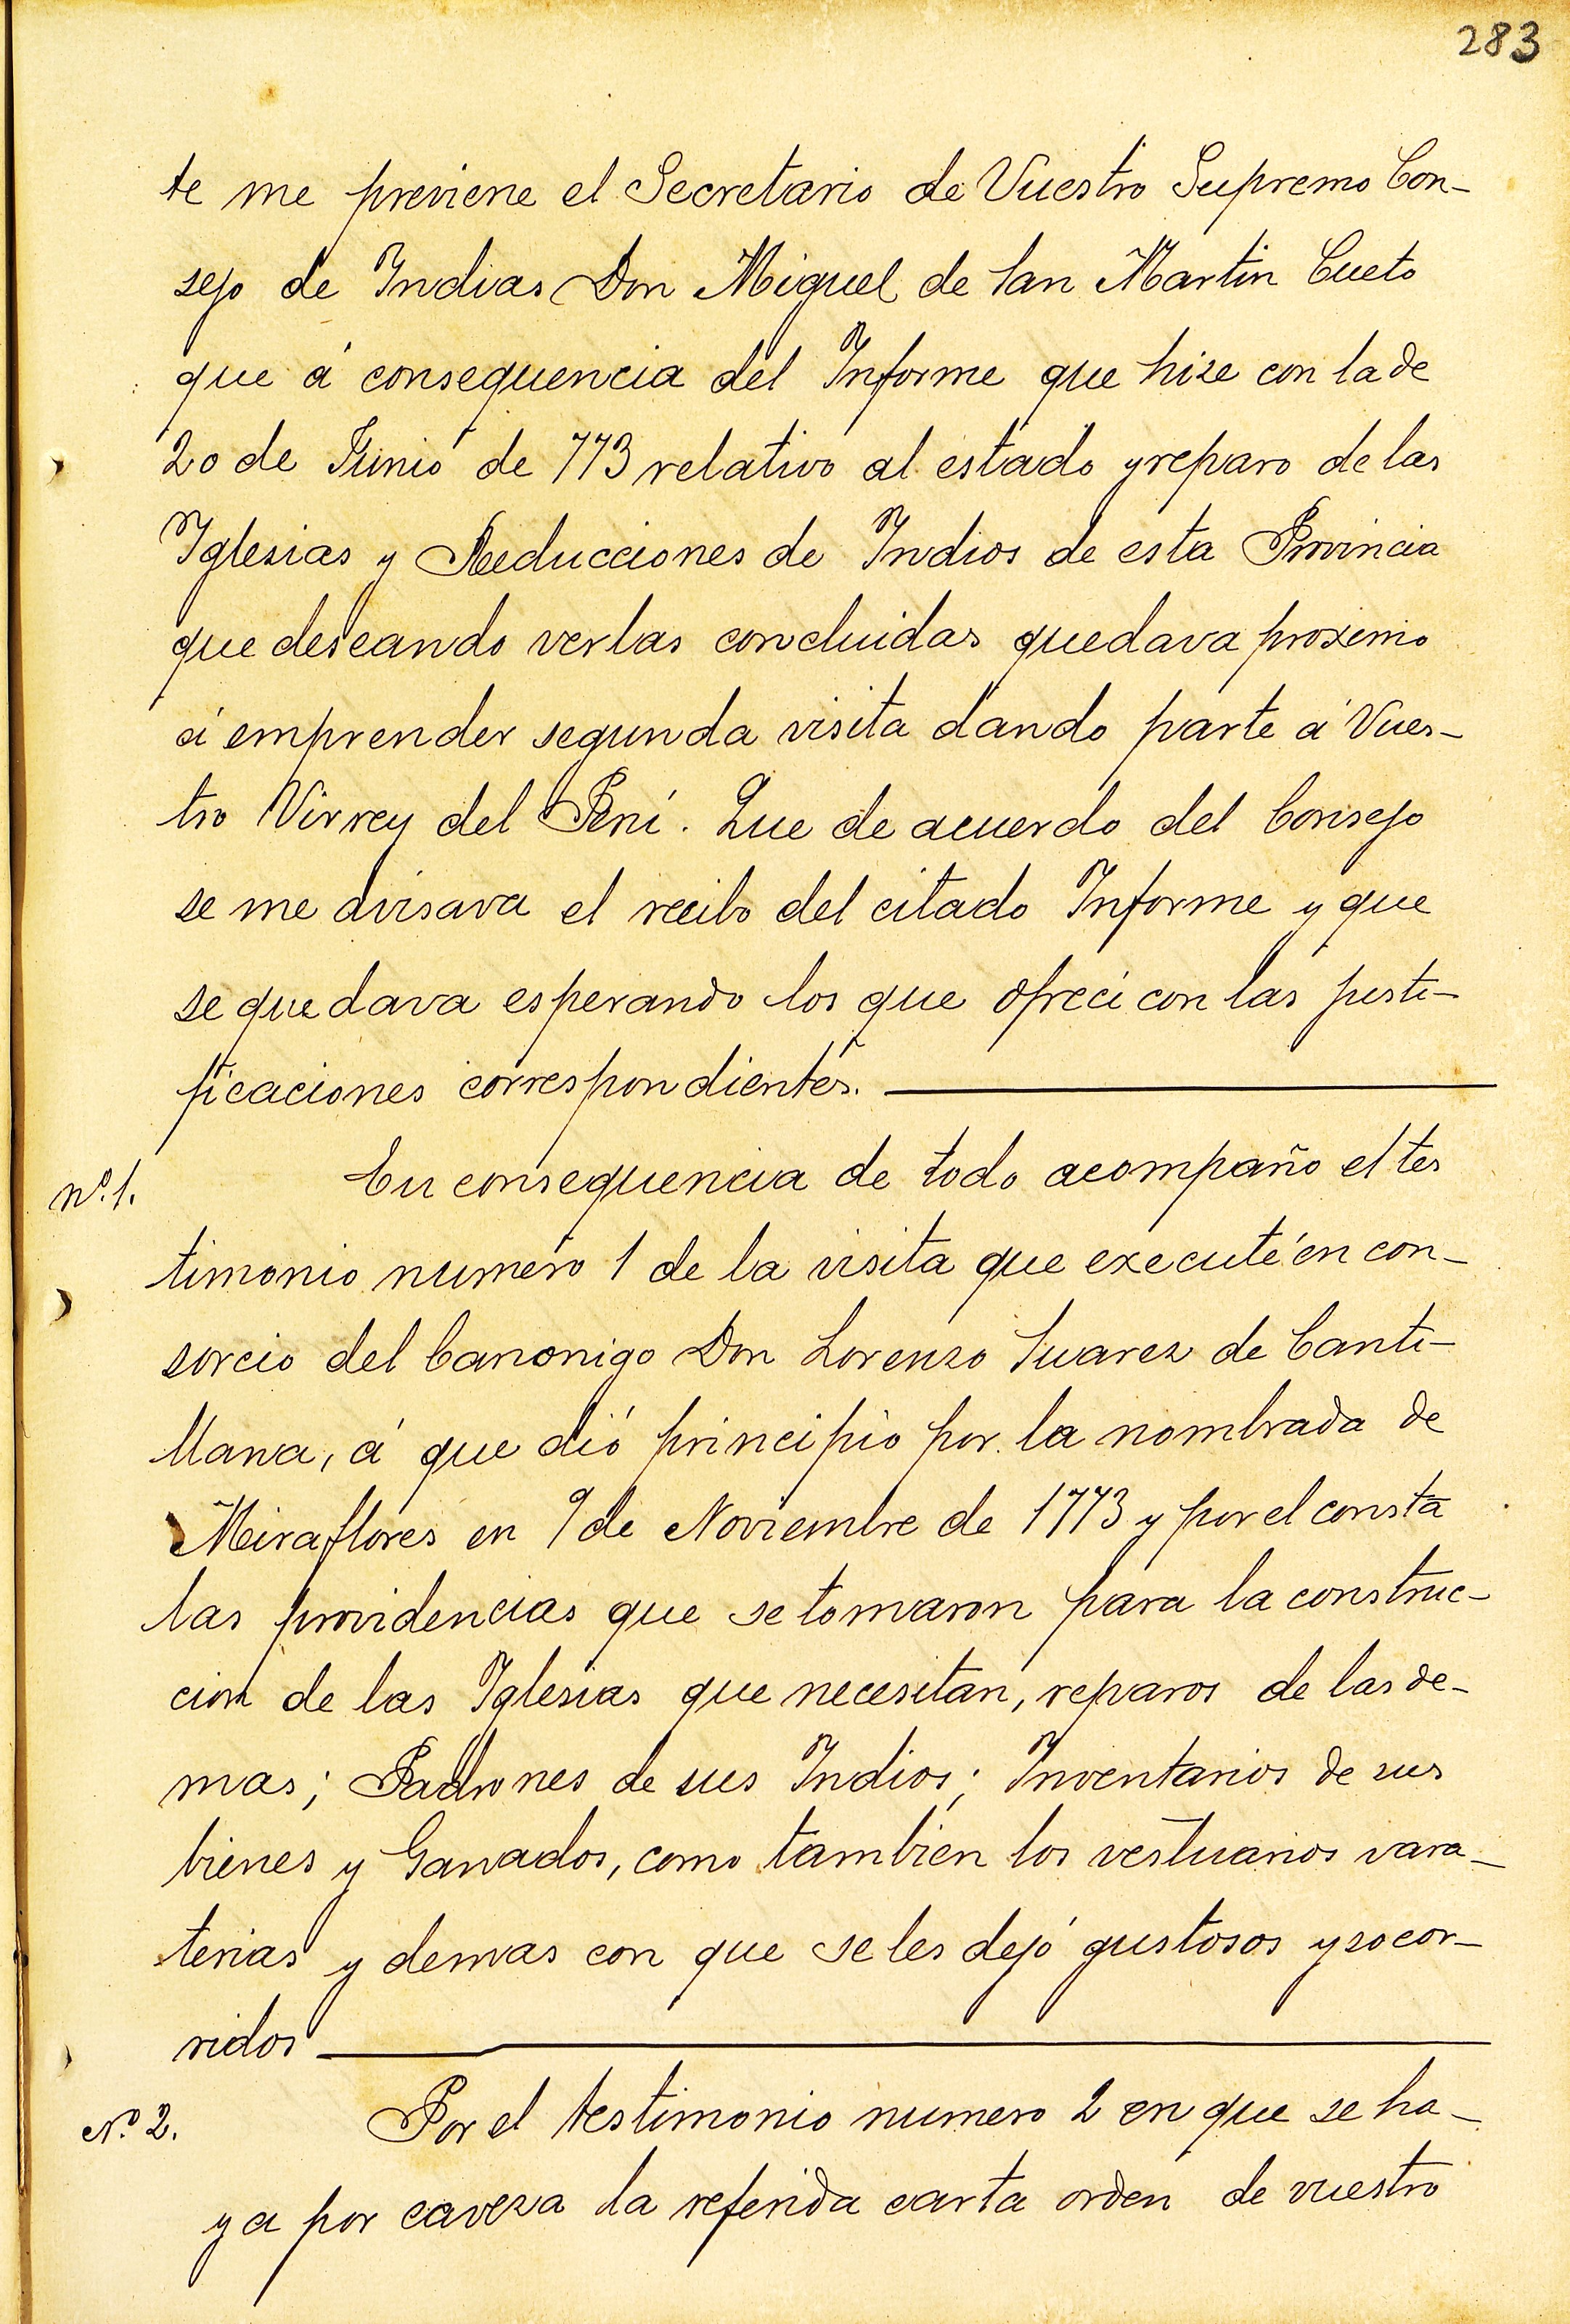 283
te me previene el Secretario de Vuestro Supremo Con-
sejo de Indias Don Miguel de San Martin Cueto
que á consequencia del Informe que hize con la de
20 de Junio de 773 relativo al estado y reparo de las
Iglesias y Reducciones de Indios de esta Provincia
que deseando verlas concluidas quedava proximo
á emprender segunda visita dando parte á Vues-
tro Virrey del Perú. Que de acuerdo del Consejo
se me avisava el recibo del citado Informe y que
se quedava esperando los que ofreci con las justi-
ficaciones correspondientes.
nº. 1.
En consequencia de todo acompaño el tes
timonio numero 1 de la visita que executé en con-
sorcio del Canonigo Don Lorenzo Suarez de Canti-
llana, á que dió principio por la nombrada de
Miraflores en 9 de Noviembre de 1773 y por el consta
las providencias que se tomaron para la construc-
cion de las Iglesias que necesitan, reparos de las de-
mas; Padrones de sus Indios; Inventarios de sus
bienes y Ganados, como tambien los vestuarios vara-
terias y demas con que se les dejó gustosos y socor-
ridos
Nº. 2.
Por el testimonio numero 2 en que se ha-
ya por caveza la referida carta orden de vuestro